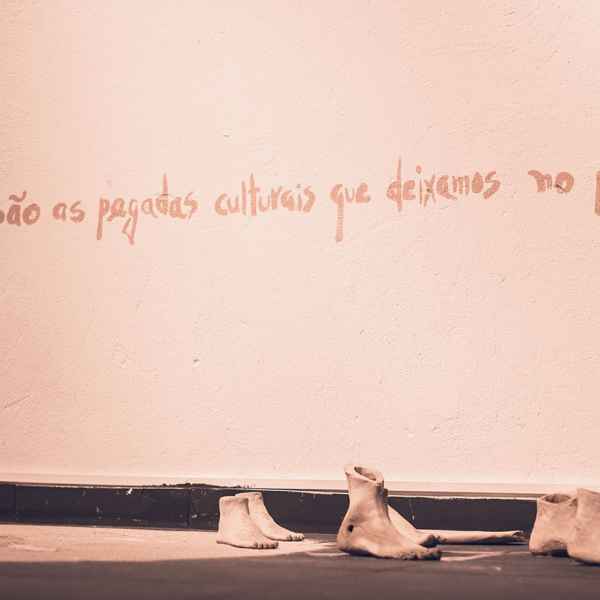 são as pegadas culturais que deixamos no